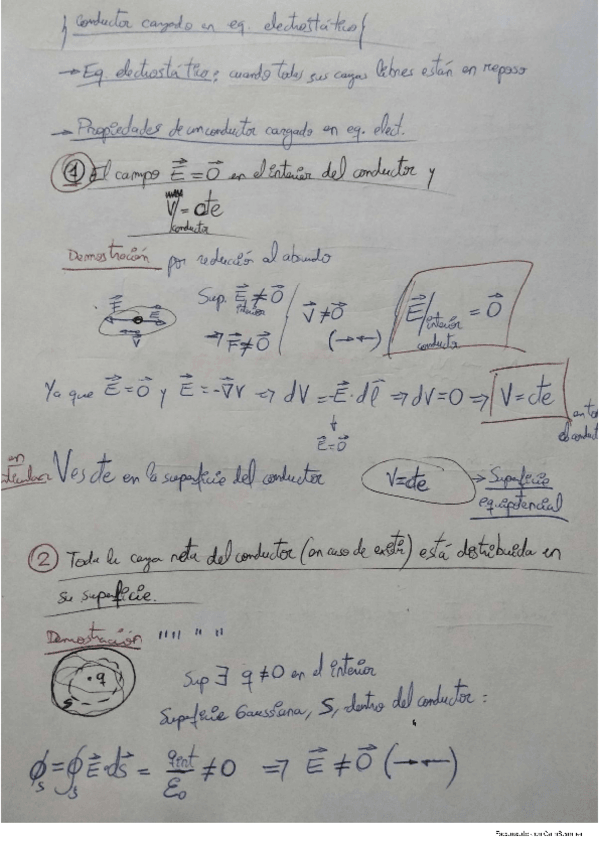 Conductor cargado en eq. electrostático
→ Eq. electrostático: cuando todas sus cargas libres están en reposo
→ Propiedades de un conductor cargado en eq. elect.
① El campo E⃗ = 0⃗ en el interior del conductor y
V = cte
conductor
Demostración por reducción al absurdo
F⃗ E⃗ v⃗
Sup. E⃗ ≠ 0⃗ interior
⇒ F⃗ ≠ 0⃗
v⃗ ≠ 0⃗
(→←)
E⃗/interior conductor = 0⃗
Ya que E⃗ = 0⃗ y E⃗ = -∇⃗V ⇒ dV = -E⃗·dl⃗ ⇒ dV = 0 ⇒ V = cte
E⃗ = 0⃗
en V es cte en la superficie del conductor
V = cte → Superficie
equipotencial
② Toda la carga neta del conductor (en caso de existir) está distribuida en
su superficie.
Demostración """" " "
q
S
Sup ∃ q ≠ 0 en el interior
Superficie Gaussiana, S, dentro del conductor:
ϕS = ∮S E⃗·dS⃗ = qint/ε0 ≠ 0 ⇒ E⃗ ≠ 0⃗ (→←)